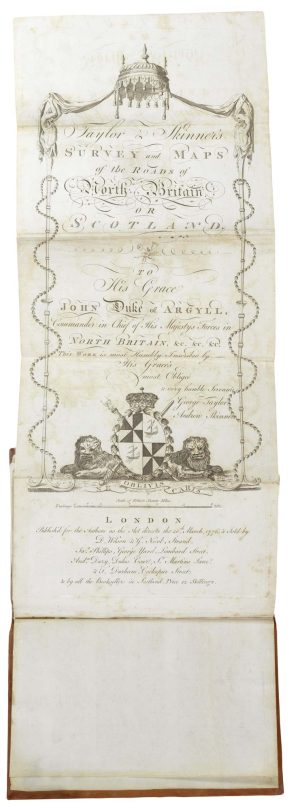 Taylor & Skinner's
SURVEY and MAPS
of the ROADS of
North Britain
OR
SCOTLAND.
TO
His Grace
JOHN Duke of ARGYLL,
Commander in Chief of His Majestys Forces in
NORTH BRITAIN, &c. &c. &c.
This WORK is most Humbly Inscribed by
His Grace's
most Oblig'd
& very humble Servants
George Taylor
Andrew Skinner
OBLIVIS CARIS
Scale of British Statute Miles
LONDON
Publish'd for the Authors as the Act directs the 20th March, 1776, & Sold by
D. Wilson & G. Nicol, Strand.
Phillips, George Yard, Lombard Street.
Dury, Dukes Court, St. Martins Lane.
& Durham Cockspur Street.
& by all the Booksellers in Scotland Price 12 Shillings.